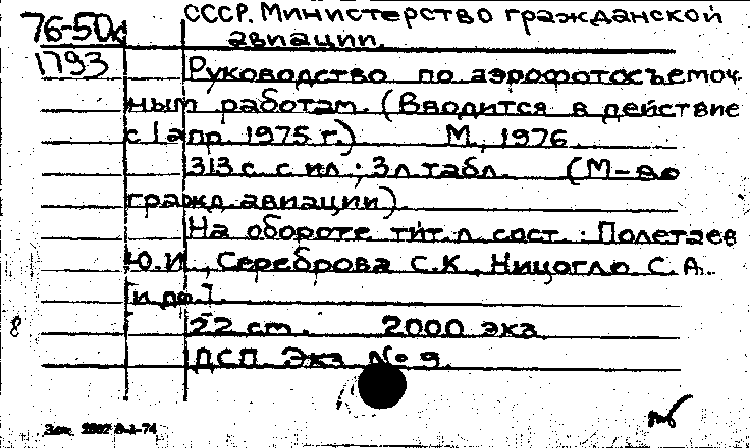 76-50к
1793
СССР. Министерство гражданской
авиации.
Руководство по аэрофотосъемоч-
ным работам. (Вводится в действие
с 1 апр. 1975 г.) М., 1976.
313 с. с ил.; 3 л. табл. (М-во
гражд. авиации).
На обороте тит. л. сост.: Полетаев
Ю.И., Сереброва С.К., Ницогло С.А.
[и др.].
22 см. 2000 экз.
ДСП. Экз. № 9.
8
Зак. 2002 8-2-74